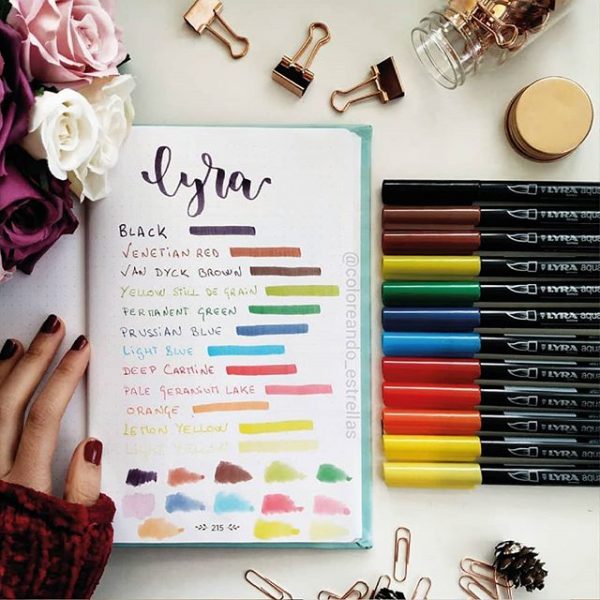 lyra
BLACK
VENETIAN RED
VAN DYCK BROWN
YELLOW STILL DE GRAIN
PERMANENT GREEN
PRUSSIAN BLUE
LIGHT BLUE
DEEP CARMINE
PALE GERANIUM LAKE
ORANGE
LEMON YELLOW
LIGHT YELLOW
215
@coloreando_estrellas
LYRA aqua
LYRA aqua
LYRA aqua
LYRA aqua
LYRA aqua
LYRA aqua
LYRA aqua
LYRA aqua
LYRA aqua
LYRA aqua
LYRA aqua
LYRA aqua